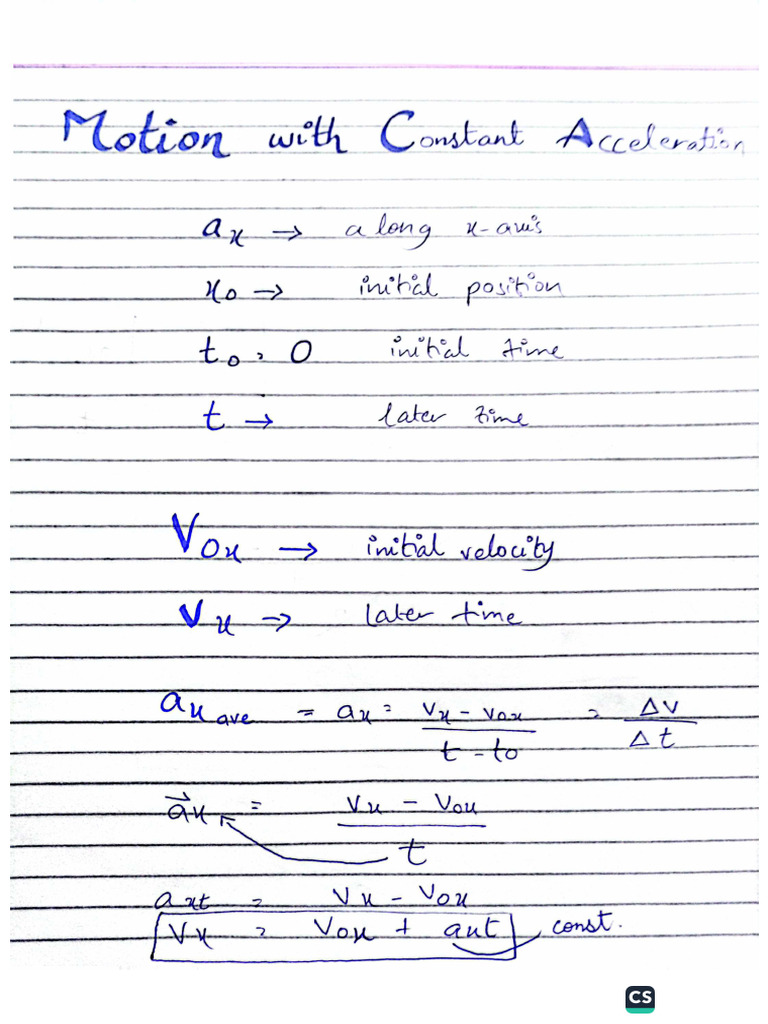 Motion with Constant Acceleration
aₓ → along x-axis
x₀ → initial position
t₀ = 0 initial time
t → later time
V₀ₓ → initial velocity
Vₓ → later time
aₓ ave = aₓ = (Vₓ - V₀ₓ) / (t - t₀) = ΔV / Δt
a⃗ₓ = (Vₓ - V₀ₓ) / t
aₓt = Vₓ - V₀ₓ
Vₓ = V₀ₓ + aₓt const.
CS